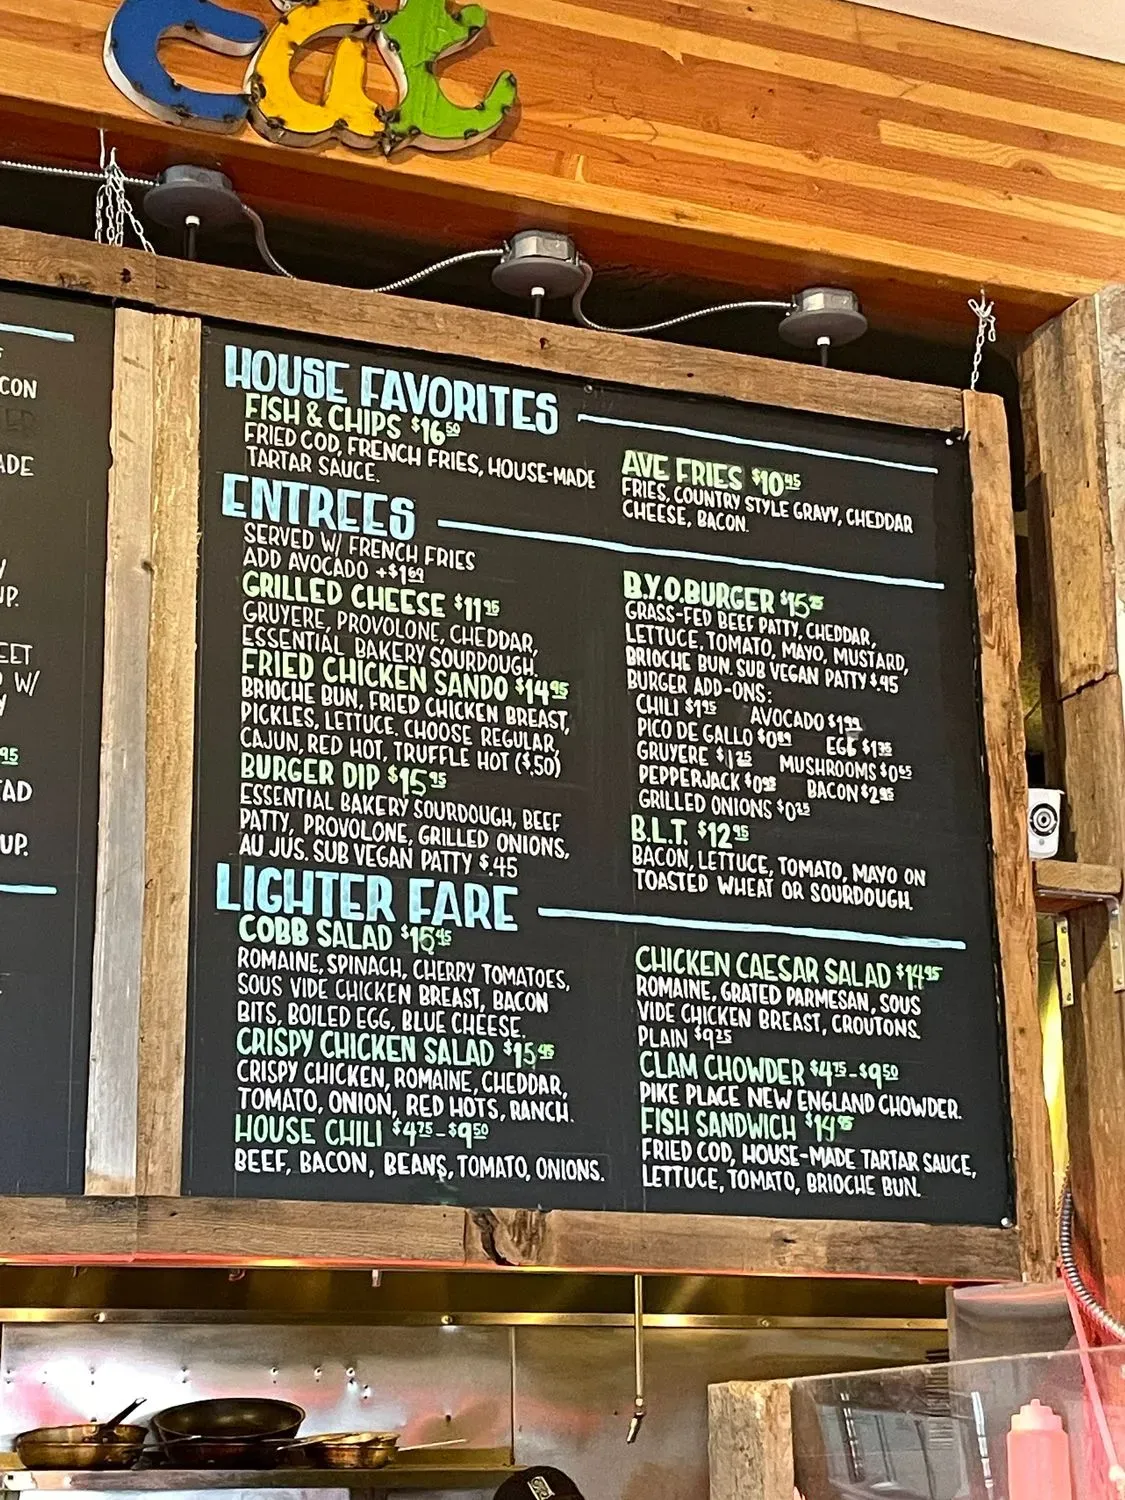 eat
CON
ADE
UP.
EET
D W/
Y
95
EAD
UP.
HOUSE FAVORITES
FISH & CHIPS $16 50
FRIED COD, FRENCH FRIES, HOUSE-MADE
TARTAR SAUCE.
AVE FRIES $10 45
FRIES, COUNTRY STYLE GRAVY, CHEDDAR
CHEESE, BACON.
ENTREES
SERVED W/ FRENCH FRIES
ADD AVOCADO +$1 69
GRILLED CHEESE $11 95
GRUYERE, PROVOLONE, CHEDDAR,
ESSENTIAL BAKERY SOURDOUGH.
FRIED CHICKEN SANDO $14 95
BRIOCHE BUN, FRIED CHICKEN BREAST,
PICKLES, LETTUCE. CHOOSE REGULAR,
CAJUN, RED HOT, TRUFFLE HOT ($.50)
BURGER DIP $15 95
ESSENTIAL BAKERY SOURDOUGH, BEEF
PATTY, PROVOLONE, GRILLED ONIONS,
AU JUS. SUB VEGAN PATTY $.45
B.Y.O.BURGER
GRASS-FED BEEF PATTY, CHEDDAR,
LETTUCE, TOMATO, MAYO, MUSTARD,
BRIOCHE BUN. SUB VEGAN PATTY $.45
BURGER ADD-ONS:
CHILI $1 95 AVOCADO
PICO DE GALLO EGG
GRUYERE $1 25 MUSHROOMS
PEPPERJACK BACON $2 95
GRILLED ONIONS
B.L.T. $12 95
BACON, LETTUCE, TOMATO, MAYO ON
TOASTED WHEAT OR SOURDOUGH.
LIGHTER FARE
COBB SALAD
ROMAINE, SPINACH, CHERRY TOMATOES,
SOUS VIDE CHICKEN BREAST, BACON
BITS, BOILED EGG, BLUE CHEESE.
CRISPY CHICKEN SALAD $15 45
CRISPY CHICKEN, ROMAINE, CHEDDAR,
TOMATO, ONION, RED HOTS, RANCH.
HOUSE CHILI $4 75 - $9 50
BEEF, BACON, BEANS, TOMATO, ONIONS.
CHICKEN CAESAR SALAD $14 95
ROMAINE, GRATED PARMESAN, SOUS
VIDE CHICKEN BREAST, CROUTONS.
PLAIN $9 25
CLAM CHOWDER $4 75 - $9 50
PIKE PLACE NEW ENGLAND CHOWDER.
FISH SANDWICH
FRIED COD, HOUSE-MADE TARTAR SAUCE,
LETTUCE, TOMATO, BRIOCHE BUN.